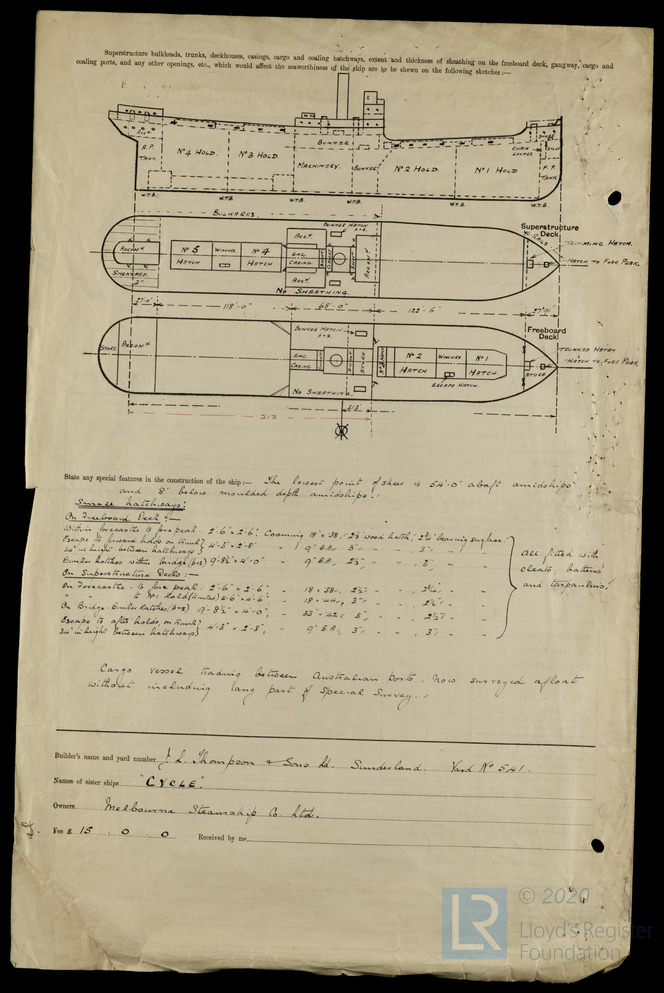 Superstructure bulkheads, trunks, deckhouses, casings, cargo and coaling hatchways, extent and thickness of sheathing on the freeboard deck, gangway, cargo and
coaling ports, and any other openings, etc., which would affect the seaworthiness of the ship are to be shewn on the following sketches:—
A.P. TANK.
Nº4 HOLD.
Nº3 HOLD.
MACHINERY.
BUNKER.
BUNKER
Nº2 HOLD.
Nº1 HOLD
CHAIN LOCKER
F.P. TANK
W.T.B. W.T.B. W.T.B. W.T.B. W.T.B.
BULWARKS
BUNKER HATCH P.&S.
Superstructure Deck
TRIMMING HATCH.
HATCH TO FORE PEAK.
ACCOMN.
SHEATHED 3"
Nº 5 HATCH
WINCHES
Nº 4 HATCH
ACCN.
ENG. CASING
ACCN.
NO SHEATHING.
118'-0"
68'-0"
122'-6"
Freeboard Deck
TRUNKED HATCH
HATCH TO FORE PEAK
STORE
ACCOMN.
BUNKER HATCH P.&S.
ENG. CASING
STORE
Nº 2 HATCH
WINCHES
Nº 1 HATCH
ESCAPE HATCH.
STORE
NO SHEATHING.
213
State any special features in the construction of the ship:— The lowest point of sheer is 54'-0" abaft amidships
and 8" below moulded depth amidships.
Small hatchways:
On Freeboard Deck:—
Within forecastle to fore peak. 2'-6" x 2'-6", Coaming 18" x .38, 2½" wood hatch, 2½" bearing surface.
Escape to forward holds on trunk
24" in height between hatchways } 4'-3" x 2'-8" " 9" B.A., 3" " " 3" "
Bunker hatches within bridge (p&s) 9'-8½" x 4'-0" " 9" B.A., 2½" " " 3" "
On Superstructure Decks:—
On Forecastle. to fore peak. 2'-6" x 2'-6", " 18" x .38, 2½" " " 2½" "
On Bridge. Bunker Hatches (p&s) 9'-8½" x 4'-0", "
Escape to after holds, on trunk
24" in height between hatchways } 4'-3" x 2'-8", " 9" B.A., 3", " " 3", "
All fitted with
cleats, battens
and tarpaulins.
Cargo vessel trading between Australian ports. Now surveyed afloat
without including any part of Special Survey.
Builder's name and yard number J. L. Thompson & Sons Ld. Sunderland. Yard Nº 541.
Names of sister ships "CYCLE".
Owners Melbourne Steamship Co. Ltd.
Fee £ 15 . 0 . 0 Received by me
LR
© 2020
Lloyd's Register
Foundation